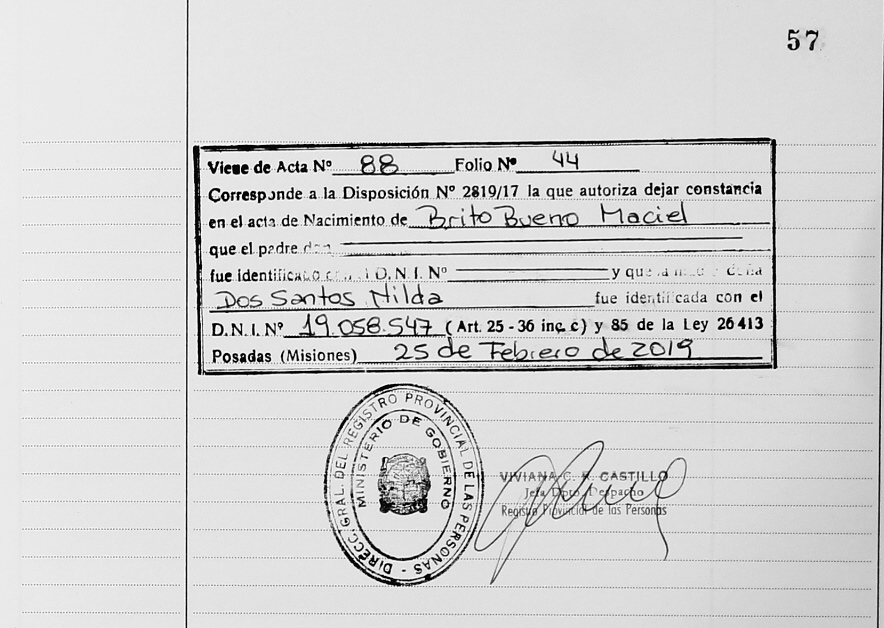 57
Viene de Acta Nº 88 Folio Nº 44
Corresponde a la Disposición Nº 2819/17 la que autoriza dejar constancia
en el acta de Nacimiento de Brito Bueno Maciel
que el padre don
fue identificado D.N.I. Nº y que la madre doña
Dos Santos Nilda fue identificada con el
D.N.I. Nº 19.058.547 (Art. 25 - 36 inc. c) y 85 de la Ley 26413
Posadas (Misiones) 25 de Febrero de 2019
DIRECC. GRAL. DEL REGISTRO PROVINCIAL DE LAS PERSONAS -
MINISTERIO DE GOBIERNO
VIVIANA C. R. CASTILLO
Jefa Dpto. Despacho
Registro Provincial de las Personas